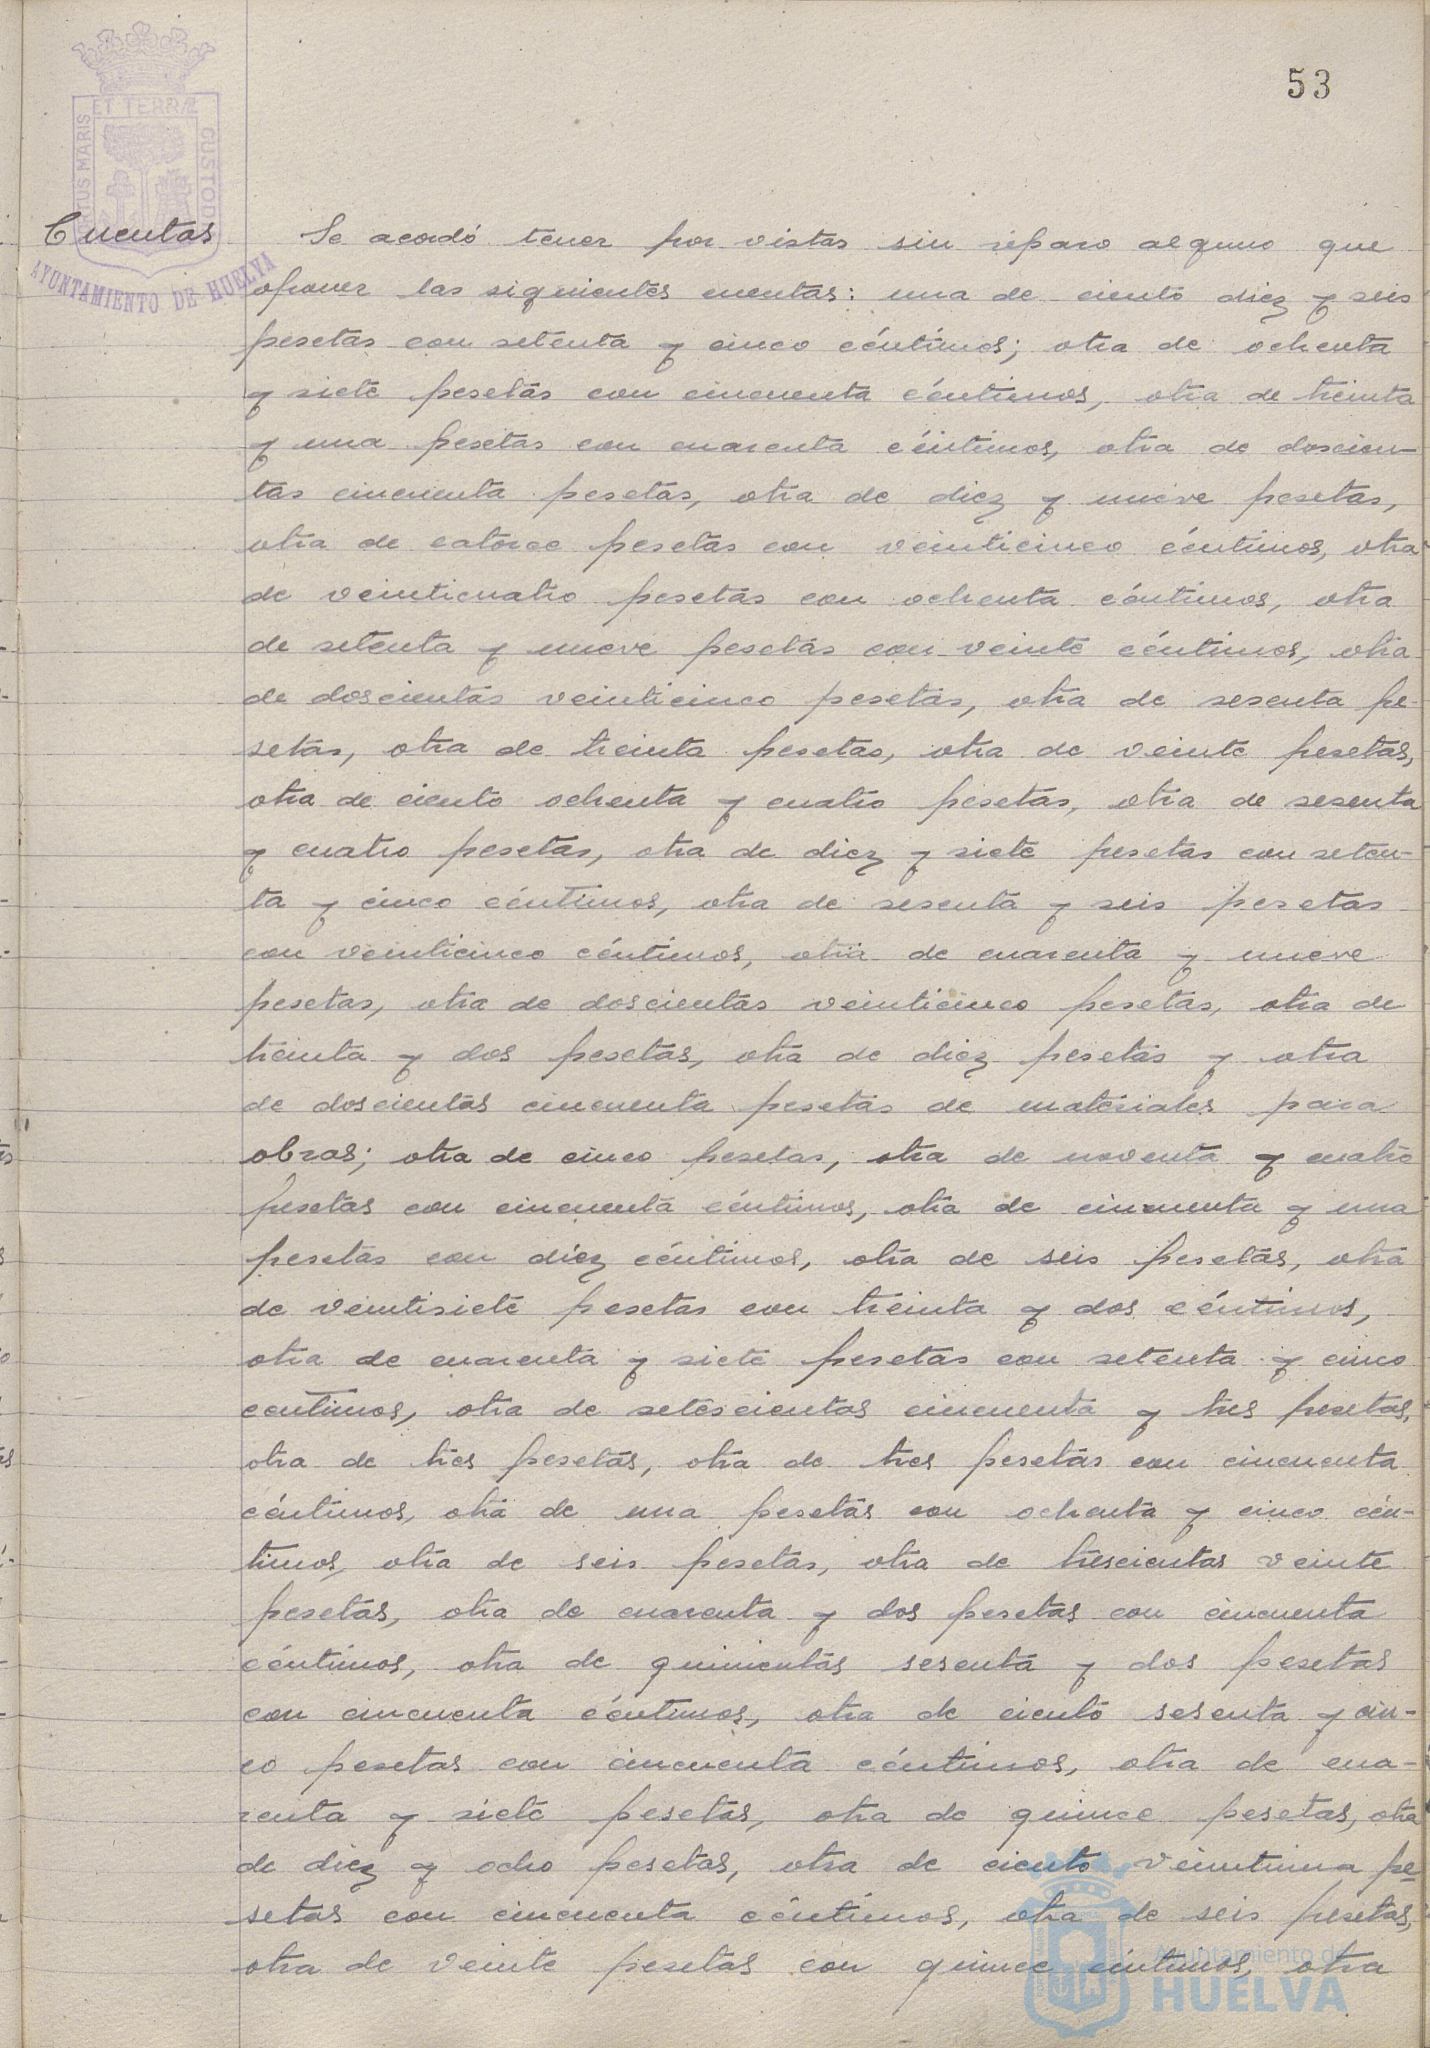 53
ET TERRÆ
PORTUS MARIS
CUSTODIA
AYUNTAMIENTO DE HUELVA
Cuentas
Se acordó tener por vistas sin reparo alguno que
oponer las siguientes cuentas: una de ciento diez y seis
pesetas con setenta y cinco céntimos; otra de ochenta
y siete pesetas con cincuenta céntimos, otra de treinta
y una pesetas con cuarenta céntimos, otra de doscien-
tas cincuenta pesetas, otra de diez y nueve pesetas,
otra de catorce pesetas con veinticinco céntimos, otra
de veinticuatro pesetas con ochenta céntimos, otra
de setenta y nueve pesetas con veinte céntimos, otra
de doscientas veinticinco pesetas, otra de sesenta pe-
setas, otra de treinta pesetas, otra de veinte pesetas,
otra de ciento ochenta y cuatro pesetas, otra de sesenta
y cuatro pesetas, otra de diez y siete pesetas con seten-
ta y cinco céntimos, otra de sesenta y seis pesetas
con veinticinco céntimos, otra de cuarenta y nueve
pesetas, otra de doscientas veinticinco pesetas, otra de
treinta y dos pesetas, otra de diez pesetas y otra
de doscientas cincuenta pesetas de materiales para
obras; otra de cinco pesetas, otra de noventa y cuatro
pesetas con cincuenta céntimos, otra de cincuenta y una
pesetas con diez céntimos, otra de seis pesetas, otra
de veintisiete pesetas con treinta y dos céntimos,
otra de cuarenta y siete pesetas con setenta y cinco
centimos, otra de setescientas cincuenta y tres pesetas,
otra de tres pesetas, otra de tres pesetas con cincuenta
céntimos, otra de una pesetas con ochenta y cinco cén-
timos, otra de seis pesetas, otra de trescientas veinte
pesetas, otra de cuarenta y dos pesetas con cincuenta
céntimos, otra de quinientas sesenta y dos pesetas
con cincuenta céntimos, otra de ciento sesenta y cin-
co pesetas con cincuenta céntimos, otra de cua-
renta y siete pesetas, otra de quince pesetas, otra
de diez y ocho pesetas, otra de ciento veintiuna pe-
setas con cincuenta céntimos, otra de seis pesetas,
otra de veinte pesetas con quince céntimos, otra
Ayuntamiento de
HUELVA